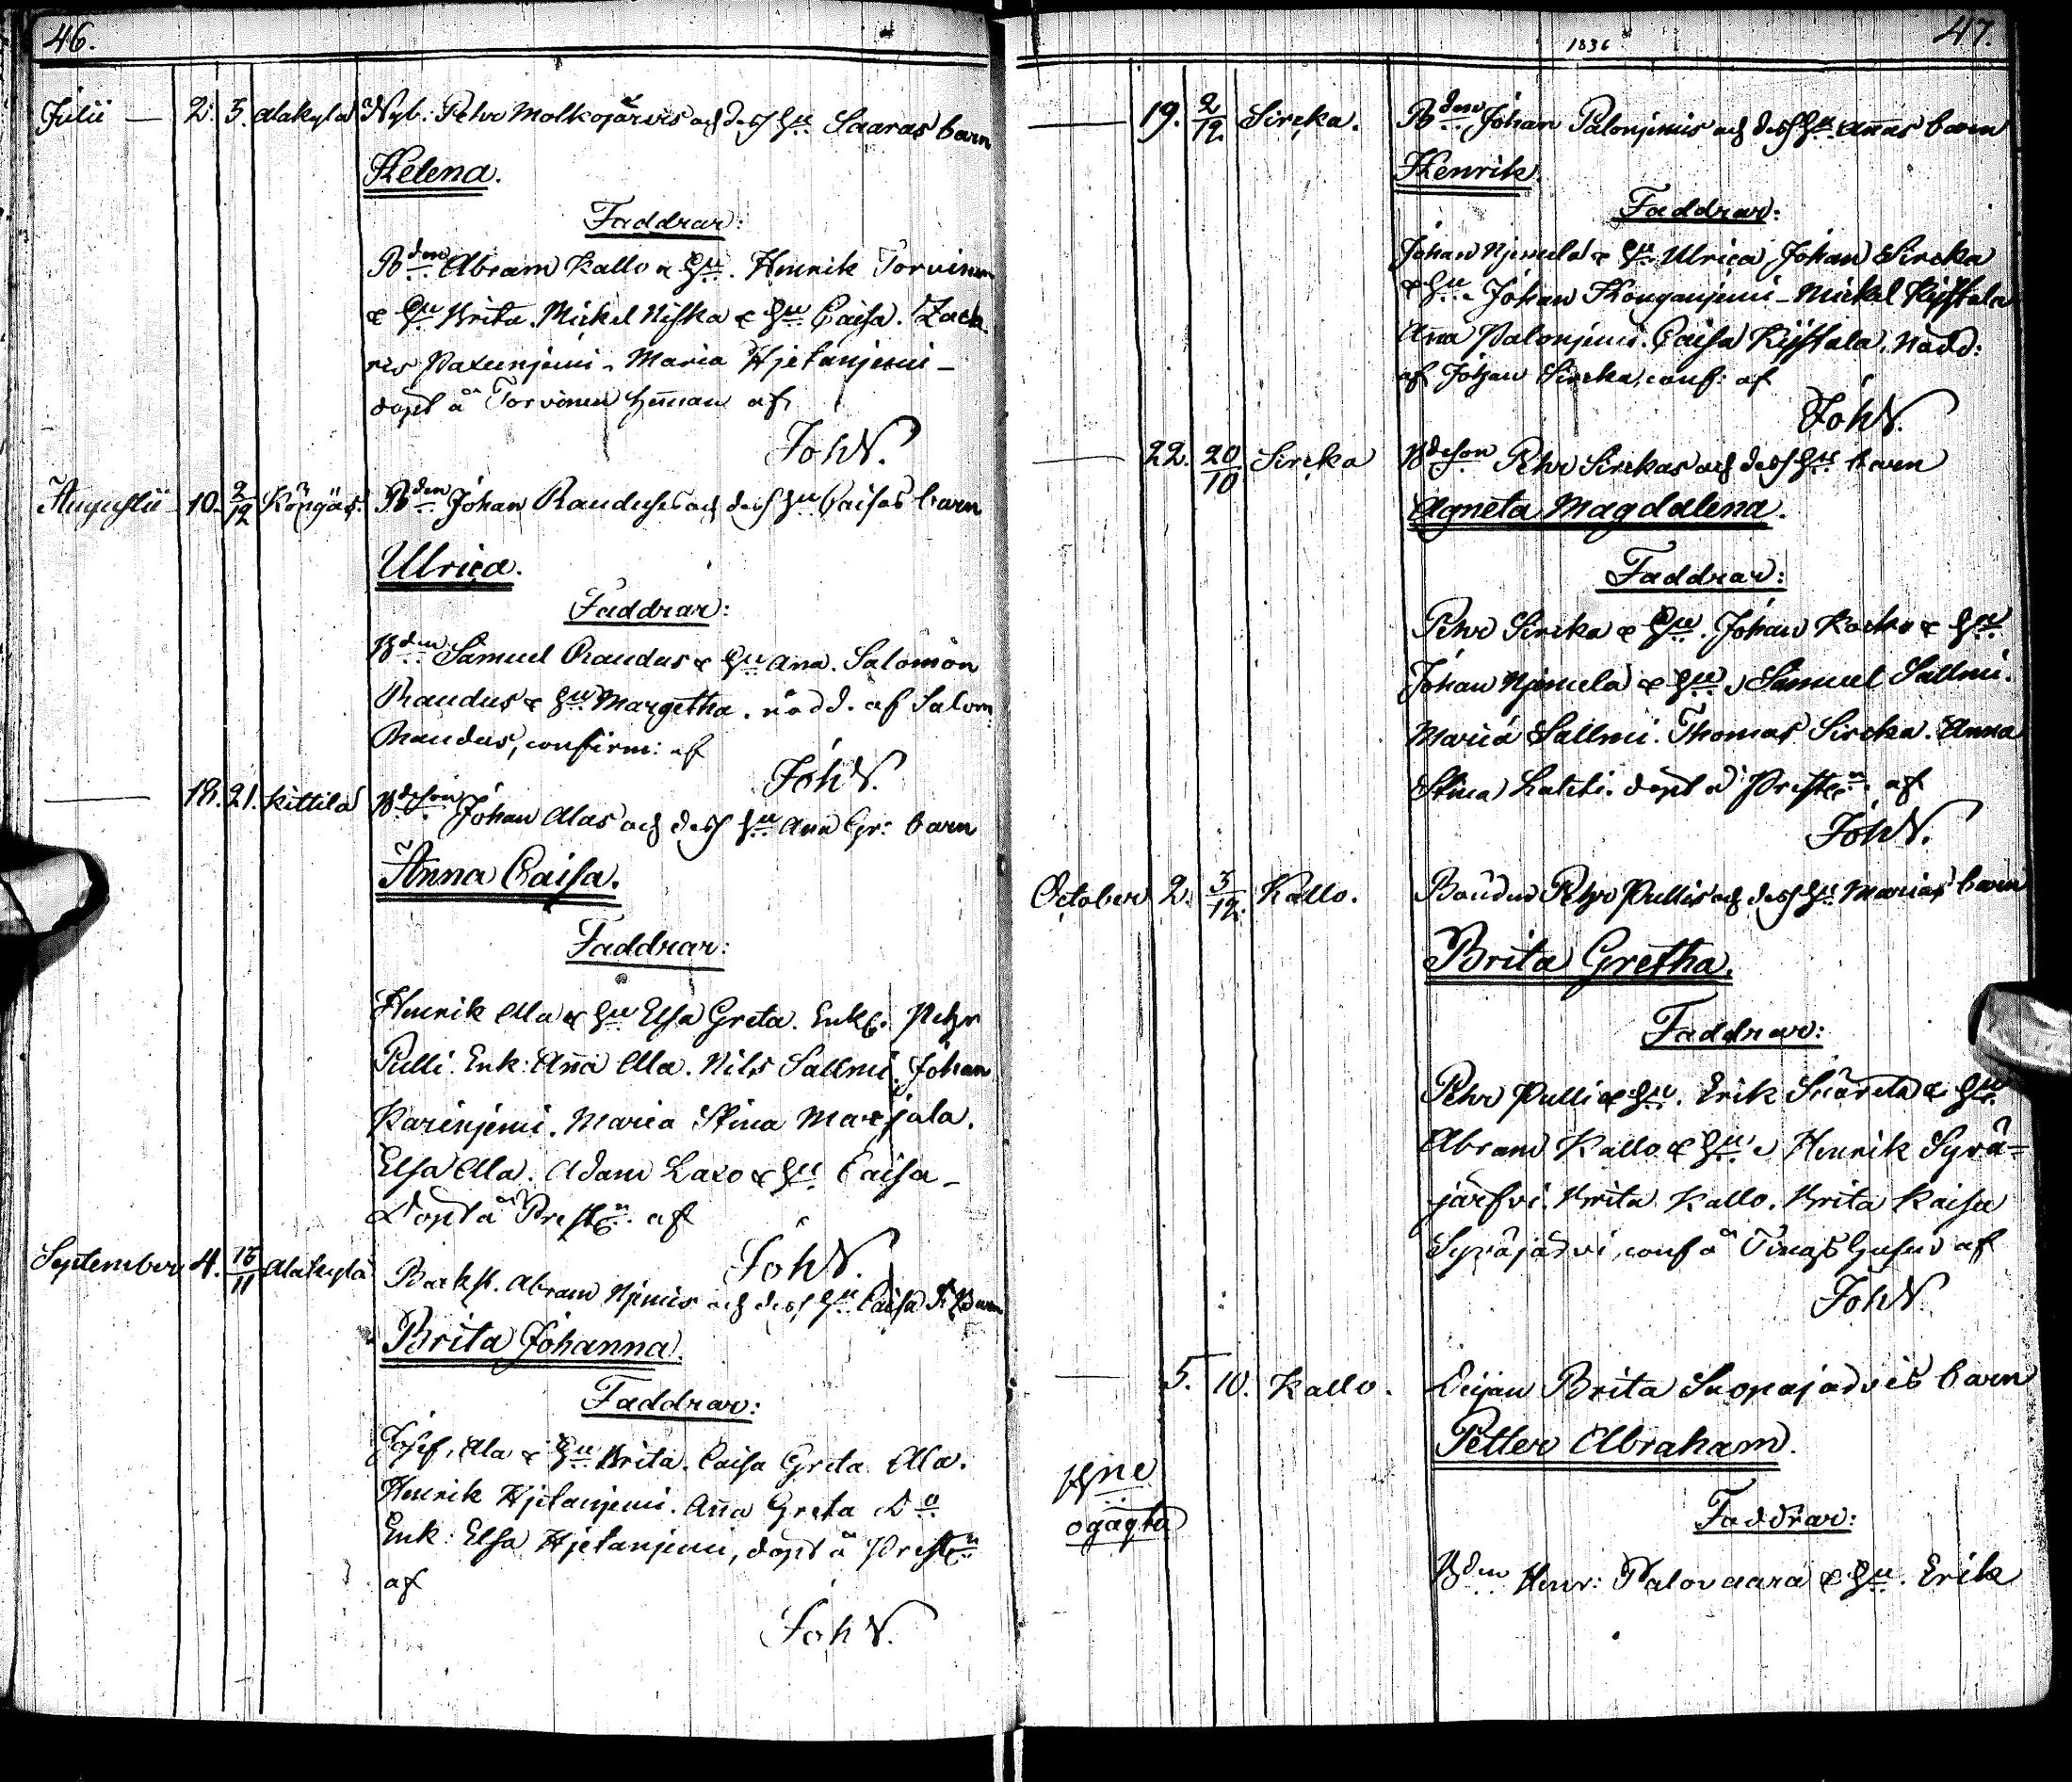 46.
Julii — 2. 5. Alakylä Nyb. Pehr Molkojärvis och dess hu Saaras barn
Helena.
Faddrar:
Bden Abram Kallo & hu. Henrik Torvinen
& hu Brita. Mickel Niska & hu Caisa. Zach
ris Paxunjemi. Maria Hjetanjemi –
döpt å Torvinen hemman af
JohN.
Augustii 10. 2/12 Köngäs. Bden Johan Randuses och dess hu Caisas barn
Ulrica.
Faddrar:
Bden Samuel Randus & hu Ana. Salomon
Randus & hu Margetha. nödd. af Salom:
Randus, confirm: af
JohN.
— 18. 21. Kittilä Bdeson Johan Alas och dess hu Ana Gr: barn
Anna Caisa.
Faddrar:
Henrik Ala & hu Elsa Greta. Enkl. Pehr
Pulli. Enk: Ana Ala. Nils Sallmi. Johan
Karinjemi. Maria Stina Marjala.
Elsa Ala. Adam Laxo & hu Caisa –
Döpt å Prestgn. af
JohN.
September 4. 15/11 Alakylä Backst. Abram Njemis och dess hu Caisa barn
Brita Johanna.
Faddrar:
Josef Ala & hu Brita. Caisa Greta Ala.
Henrik Hjetanjemi. Ana Greta Do
Enk: Elsa Hjetanjemi, döpt å Prestgn
af
JohN.
1836 47.
— 19. 2/12. Sircka. Bden Johan Palonjemis och dess hu Anas barn
Henrik.
Faddrar:
Johan Njemelä & hu Ulrica Johan Sircka
& hu. Johan Konganjemi – Mickel Kyttala
Ana Palonjemi. Caisa Kyttala. Nödd:
af Johan Sircka, conf: af
JohN.
— 22. 20/10 Sircka Bdeson Pehr Sirckas och dess hu barn
Agneta Magdalena.
Faddrar:
Pehr Sircka & hu. Johan Kocko & hu
Johan Njemelä & hu. Samuel Sallmi.
Maria Sallmi. Thomas Sircka. Anna
Stina Lahti. döpt å Prestgn. af
JohN.
October 2. 3/12. Kallo. Bonden Pehr Pullis och dess hu Marias barn
Brita Gretha.
Faddrar:
Pehr Pulli & hu. Erik & hu
Abram Kallo & hu. Henrik Syrä=
järfvi. Brita Kallo. Brita Kaisa
Syräjärvi, conf å Tings Gusen af
JohN.
— 5. 10. Kallo. Pijan Brita Suopajärvis barn
Petter Abraham.
Faddrar:
ogägta
Bden Henr: Palovaara & hu. Erik